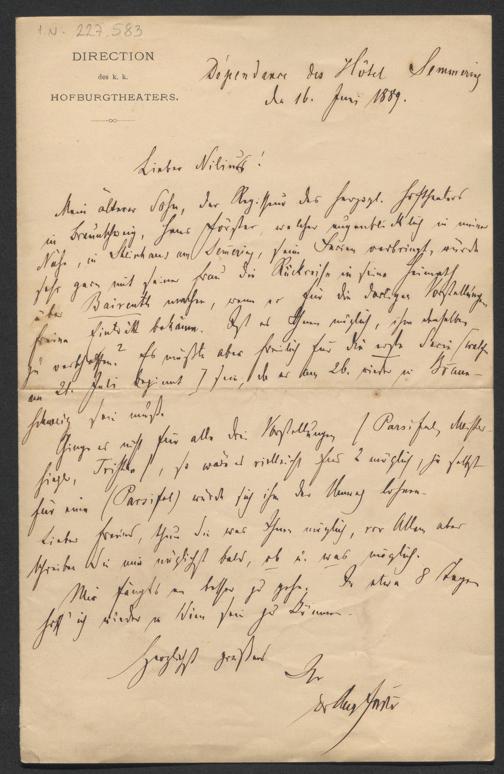 I.N. 227.583
DIRECTION
des k. k.
HOFBURGTHEATERS.
Dépendance des Hôtel Semmering
den 16. Juni 1889.
Lieber Nilius!
Mein älterer Sohn, der Regisseur des herzogl. Hoftheaters
in Braunschweig, Hans Förster, welcher augenblicklich in meiner
Nähe, in Steinhaus am Semmering, seine Ferien verbringt, würde
sehr gern mit seiner Frau die Rückreise in seine Heimath
über Baireuth machen, wenn er für die dortigen Vorstellungen
freien Eintritt bekäme. Ist es Ihnen möglich, ihm denselben
zu verschaffen? Es müßte aber freilich für die erste Serie (welche
am 21. Juli beginnt) sein, da er am 26. wieder in Braun-
schweig sein muß.
Ginge es nicht für alle drei Vorstellungen (Parsifal, Meister-
singer, Tristan), so wäre es vielleicht für 2 möglich, ja selbst
für eine (Parsifal) würde sich ihm der Umweg lohnen.
Lieber Freund, thun Sie was Ihnen möglich, vor Allem aber
schreiben Sie mir möglichst bald, ob u. was möglich.
Mir fängts an besser zu gehen. In etwa 8 Tagen
hoff' ich wieder in Wien sein zu können.
Herzlichst grüßend
Ihr
Dr Aug Förster